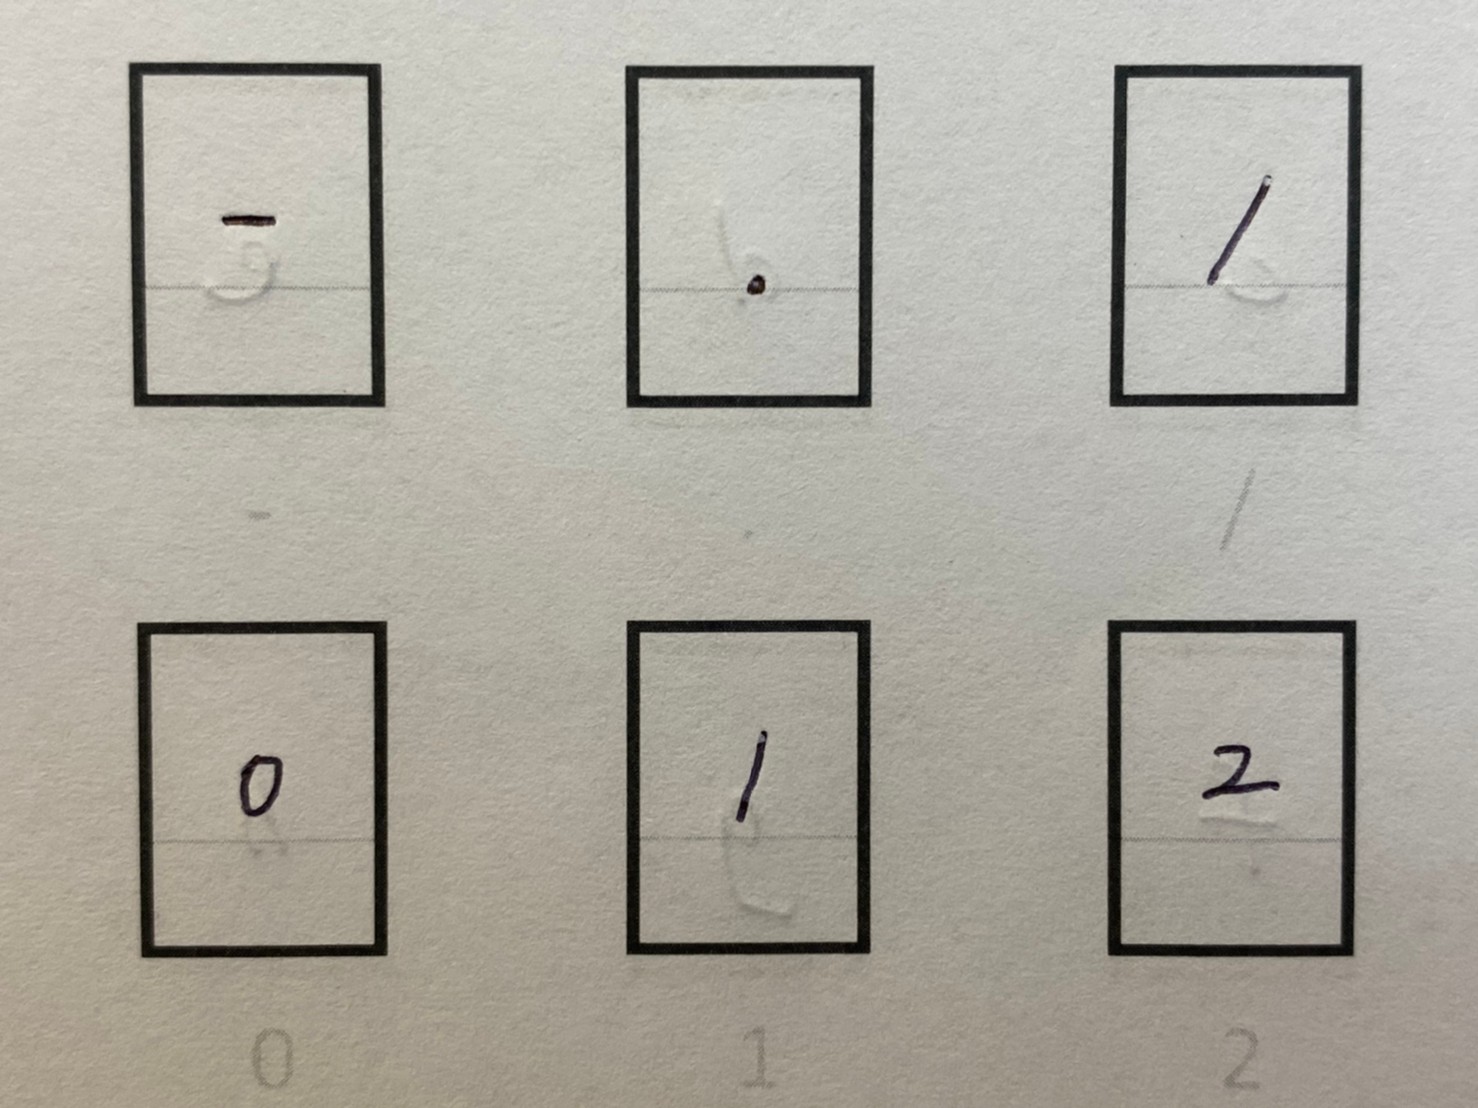 - . /
- . /
0 1 2
0 1 2